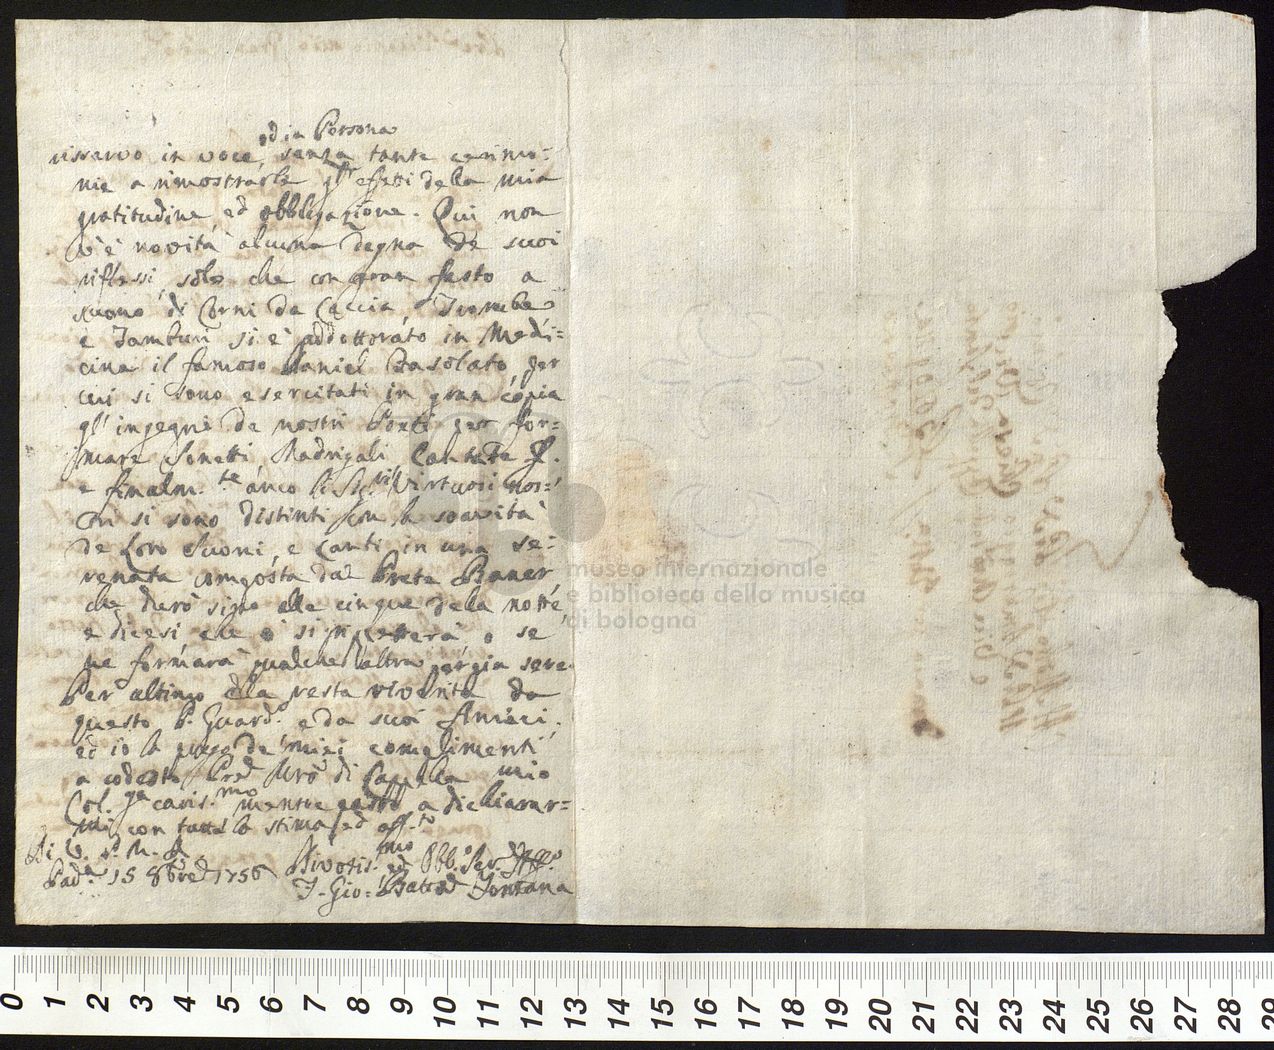 ed in Persona
risservo in voce, senza tante cerimo:
nie a rimostrarle gl'effetti della mia
gratitudine ed obbligazione. Qui non
v'è novità alcuna degna de suoi
riflessi, solo che con gran fasto a
suono di Corni da Caccia, Trombe
e Tamburi si è addottorato in Medi:
cina il famoso Daniel Basolato, per
cui si sono esercitati in gran copia
gl'ingegni de nostri Poeti per for:
mare Sonetti, Madrigali Cantate
e finalm.te anco li Sig.ri Virtuosi nos:
tri si sono distinti con la soavità
de Loro Suoni, e Canti in una se:
renata composta dal Prete Baner
che durò sino alle cinque della notte,
e dicesi che o si ripetterà o se
ne formarà qualche altra
Per altimo ella resta riverita da
questo P. Guard.o e da suoi Amici,
ed io la prego de' miei complimenti
a codesto Pred. Mro di Cappella mio
Col.ga caris.mo mentre passo a dichiarar:
mi con tutta la stima, ed aff.to
Di V. P. M. R.
Pad.a 15 8bre 1756 Divotis.mo ed Obb. Ser. Aff.o
F. Gio: Batta Fontana
museo internazionale
e biblioteca della musica
di bologna
0 1 2 3 4 5 6 7 8 9 10 11 12 13 14 15 16 17 18 19 20 21 22 23 24 25 26 27 28 29